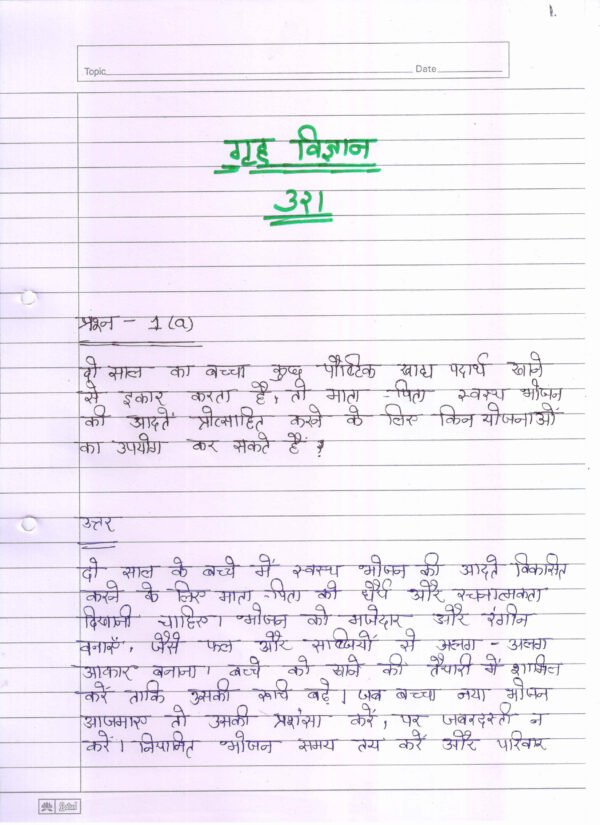 1.
Topic
Date
गृह विज्ञान
321
प्रश्न - 1 (a)
दो साल का बच्चा कुछ पौष्टिक खाद्य पदार्थ खाने
से इंकार करता है, तो माता-पिता स्वस्थ भोजन
की आदतें प्रोत्साहित करने के लिए किन योजनाओं
का उपयोग कर सकते हैं ?
उत्तर
दो साल के बच्चे में स्वस्थ भोजन की आदतें विकसित
करने के लिए माता-पिता को धैर्य और रचनात्मकता
दिखानी चाहिए। भोजन को मजेदार और रंगीन
बनाएँ, जैसे फल और सब्जियों से अलग-अलग
आकार बनाना। बच्चे को खाने की तैयारी में शामिल
करें ताकि उसकी रुचि बढ़े। जब बच्चा नया भोजन
आजमाए तो उसकी प्रशंसा करें, पर जबरदस्ती न
करें। नियमित भोजन समय तय करें और परिवार